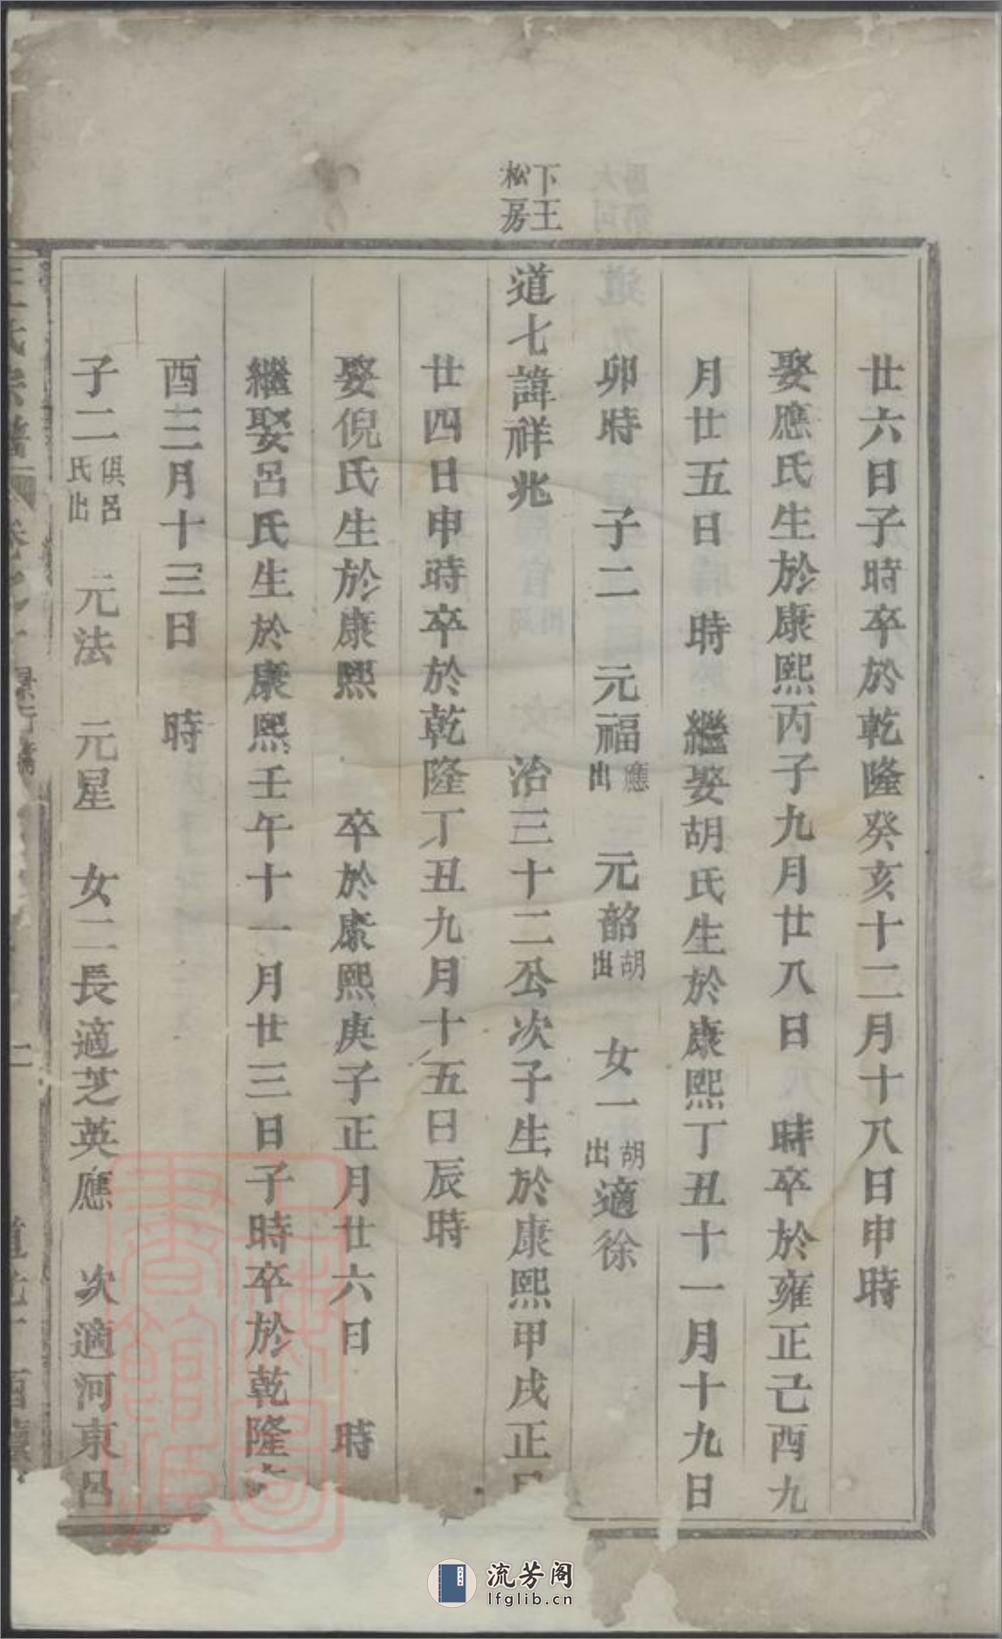 下王
松房
廿六日子時卒於乾隆癸亥十二月十八日申時
娶應氏生於康熙丙子九月廿八日 時卒於雍正己酉九
月廿五日 時 繼娶胡氏生於康熙丁丑十一月十九日
卯時 子二 元福應出 元韶胡出 女一胡出適徐
道七諱祥兆 治三十二公次子生於康熙甲戌正月
廿四日申時卒於乾隆丁丑九月十五日辰時
娶倪氏生於康熙 卒於康熙庚子正月廿六日 時
繼娶呂氏生於康熙壬午十一月廿三日子時卒於乾隆
酉三月十三日 時
子二俱呂氏出 元法 元星 女二長適芝英應 次適河東呂
王氏宗譜
流芳阁
lfglib.cn